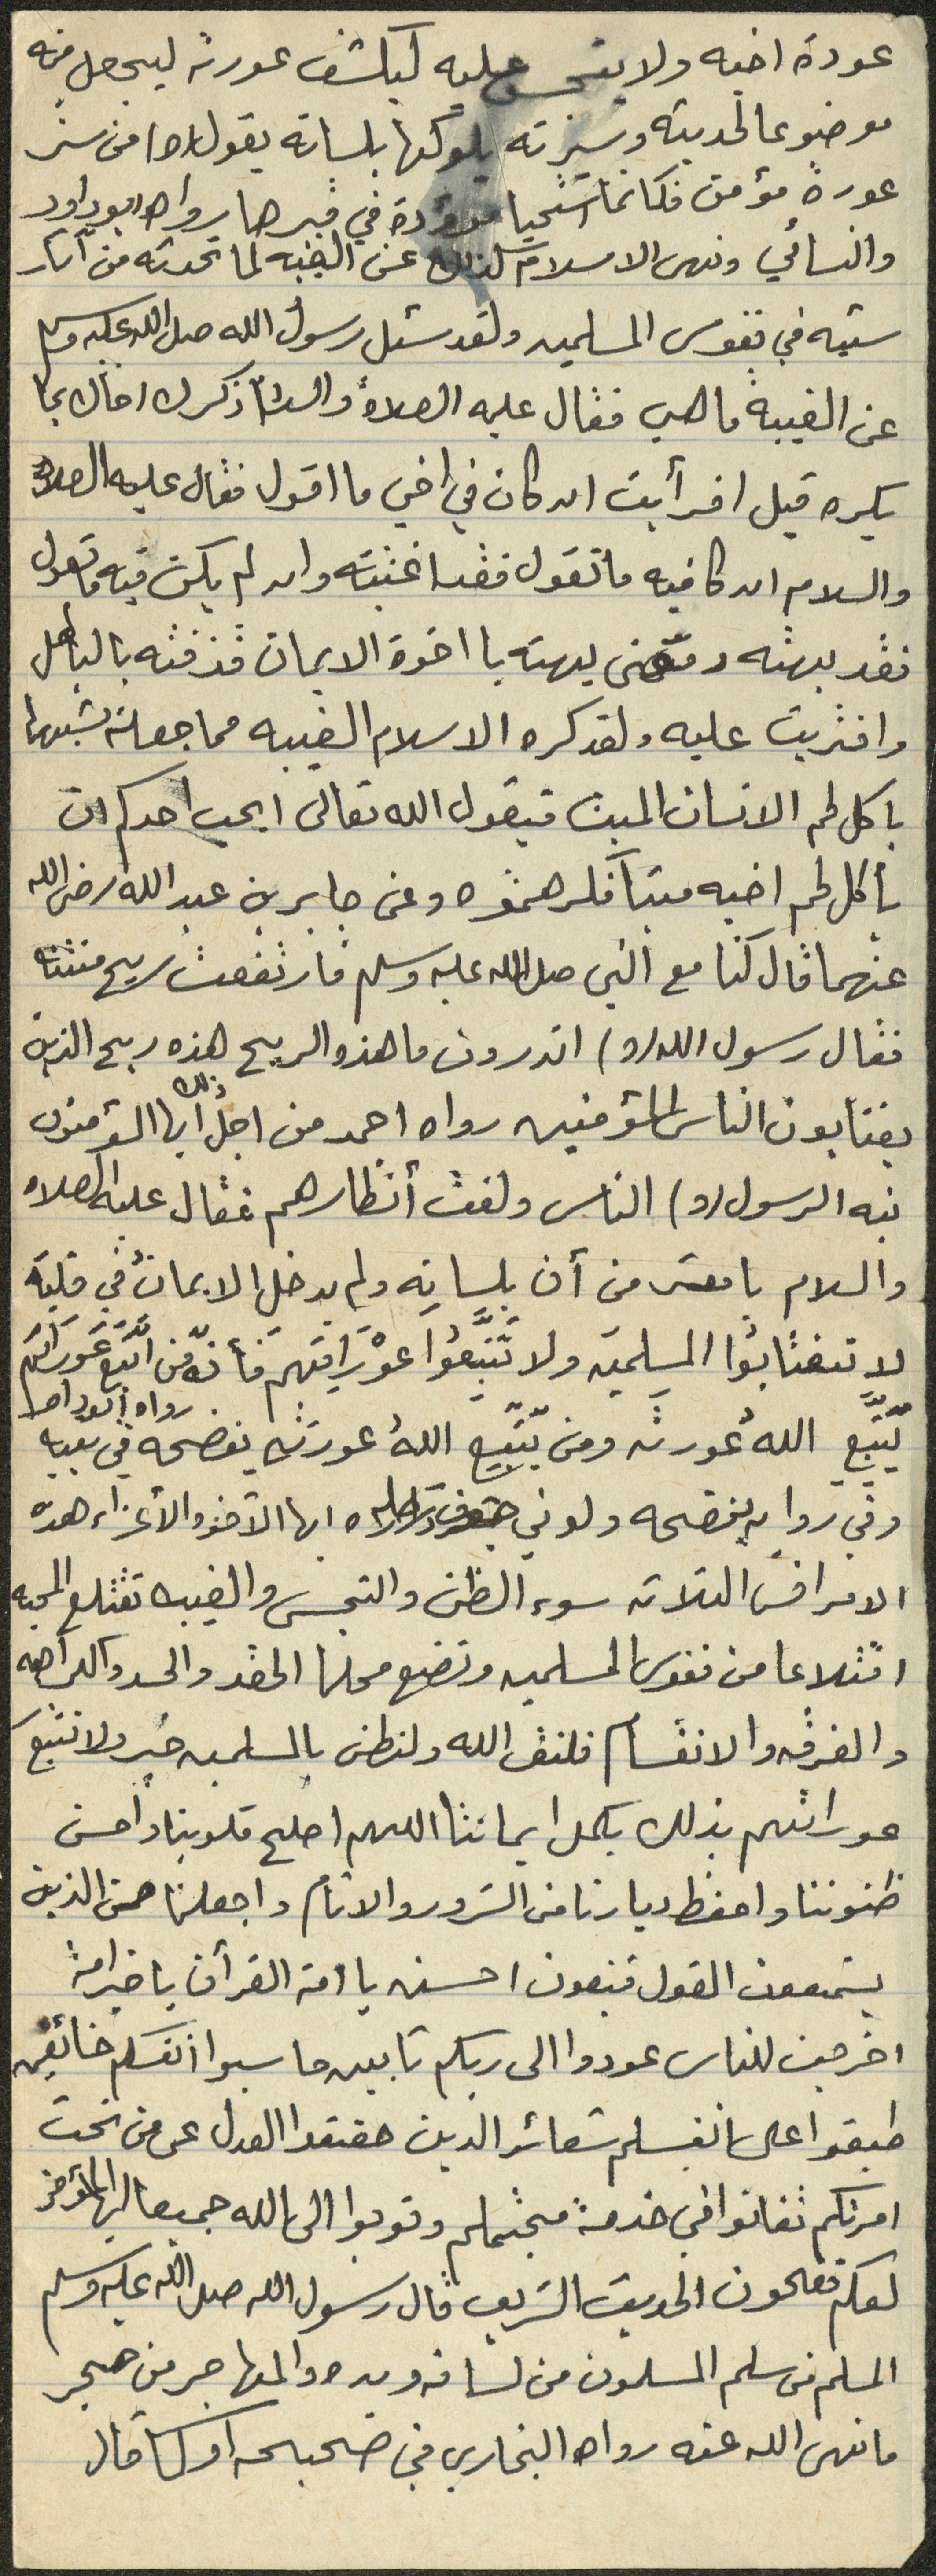 عورة اخيه ولا يتجسس عليه ليكشف عورته ليجعل منه
موضوعا لحديثه وسيرته يلوكها بلسانه يقول (ص) من ستر
عورة مؤمن فكانما استحيا موؤدة في قبرها رواه ابو داود
والنسائي ونهى الاسلام كذلك عن الغيبه لما تحدثه من آثار
سيئه في نفوس المسلمين ولقد سئل رسول الله صلى الله عليه وسلم
عن الغيبة ما هي فقال عليه الصلاة والسلام ذكرك اخاك بما
يكره قيل افرأيت ان كان في اخي ما اقول فقال عليه الصلاة
والسلام ان كا فيه ما تقول فقد اغتبته وان لم يكن فيه ما تقول
فقد بهته ومعنى بهته يا اخوة الايمان قذفته بالباطل
وافتريت عليه ولقد كره الاسلام الغيبه مما جعله يشبهها
باكل لحم الانسان الميت فيقول الله تعالى ايحب احدكم ان
يأكل لحم اخيه ميتا فكرهتموه وعن جابر بن عبد الله رضي الله
عنهما قال كنا مع النبي صلى الله عليه وسلم فارتفعت ريح منتنه
فقال رسول الله (ص) اتدرون ما هذه الريح هذه ريح الذين
يغتابون الناس المؤمنين رواه احمد من اجل ذلك أيها المؤمنون
نبه الرسول (ص) الناس ولفت أنظارهم فقال عليه الصلاه
والسلام يا معشر من أمن بلسانه ولم يدخل الايمان في قلبه
لا تغتابُوا المسلمين ولا تَتَّبِعُوا عوْرَاتِهم فأنّه من اتَّبَعَ عَوْرَاتِهم
يتَّبِّعِ اللهُ عَورته ومن يتّبِّعِ اللهُ عورته يفضحه في بيته رواه ابو داود
وفي روايه يفضحه ولو في جوف رحله ايها الأخوه الأعزاء هذه
الامراض الثلاثه سوء الظن والتجسس والغيبه تقتلع المحبه
اقتلاعا من نفوس المسلمين وتضع محلها الحقد والحسد والكراهيه
والفرقه والانقسام فلنتق الله ولنظن بالمسلمين خير ولا نتبع
عوراتهم بذلك يكمل ايماننا اللهم اصلح قلوبنا واحسن
ظنوننا واحفظ ديارنا من الشرور والاثام واجعلنا من الذين
يستمعون القول فيتبعون احسنه يا امة القرآن يا خير امة
اخرجت للناس عودوا الى ربكم تائبين حاسبوا انفسكم خائفين
طبقوا على انفسكم شعائر الدين حققوا العدل عمى من تحت
امرتكم تفانوا في خدمة مجتمعكم وتوبوا الى الله جميعا ايها المؤمنون
لعلكم تفلحون الحديث الشريف قال رسول الله صلى الله عليه وسلم
المسلم من سلم المسلمون من لسانه ويده والمهاجر من هجر
ما نهى الله عنه رواه البخاري في صحيحه او كما قال